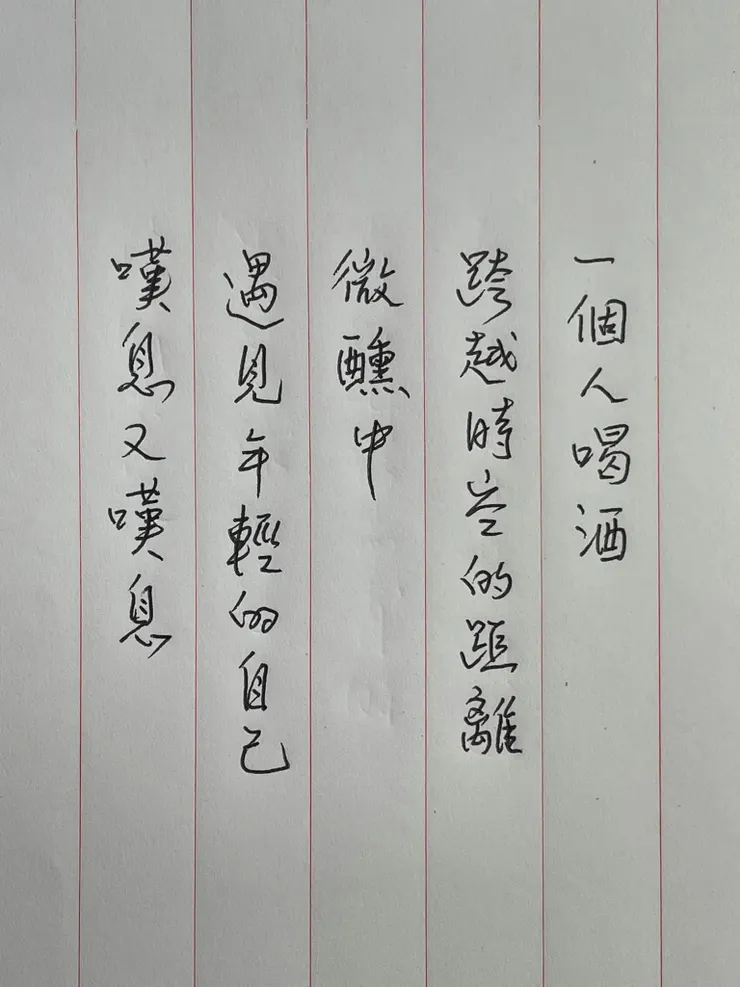 一個人喝酒
跨越時空的距離
微醺中
遇見年輕的自己
嘆息又嘆息